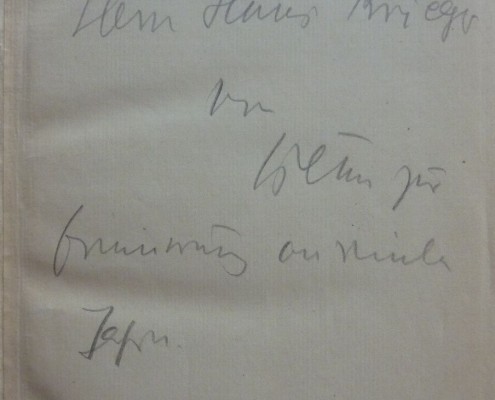 Herrn Hans Krieg
von
zur
Erinnerung an viele
Jahre.